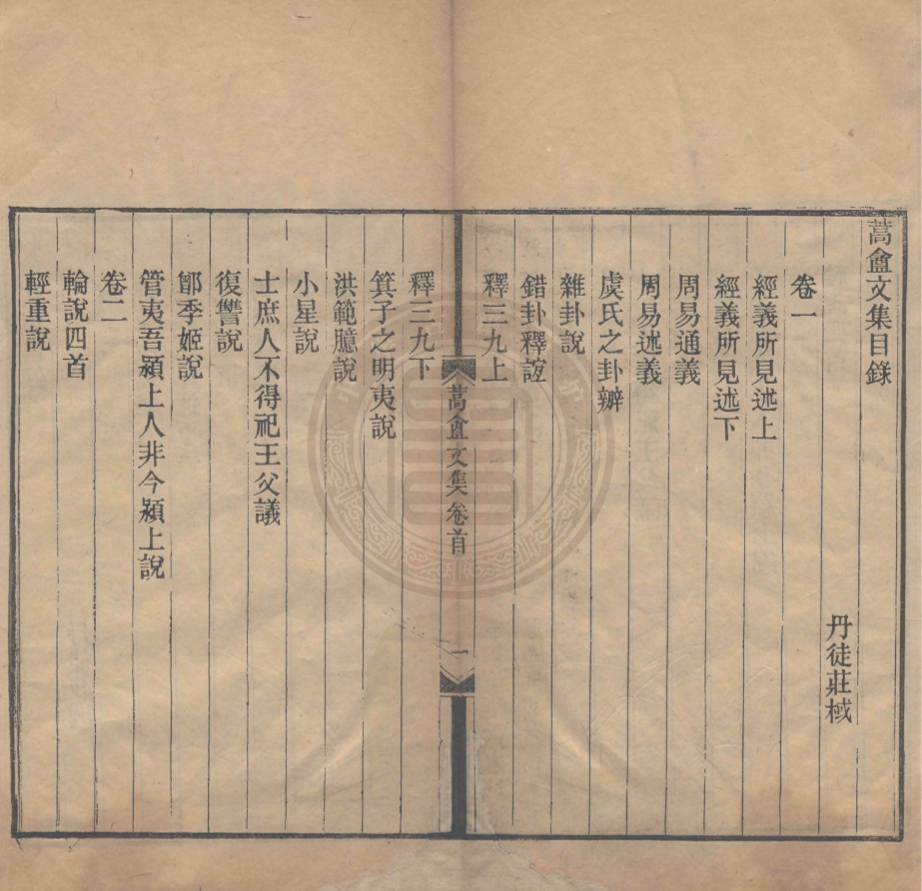 蒿盦文集目錄
丹徒莊棫
卷一
經義所見述上
經義所見述下
周易通義
周易述義
虞氏之卦辨
雜卦說
錯卦釋誼
釋三九上
蒿盦文集卷首
一
釋三九下
箕子之明夷說
洪範臆說
小星說
士庶人不得祀王父議
復讐說
鄫季姬說
管夷吾潁上人非今潁上說
卷二
輪說四首
輕重說